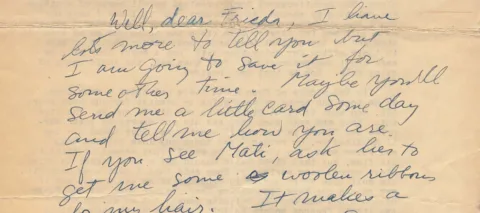 Well, dear Frieda, I have
lots more to tell you but
I am going to save it for
some other time. Maybe you'll
send me a little card some day
and tell me how you are.
If you see Mati, ask her to
get me some woolen ribbons
for my hair. It makes a